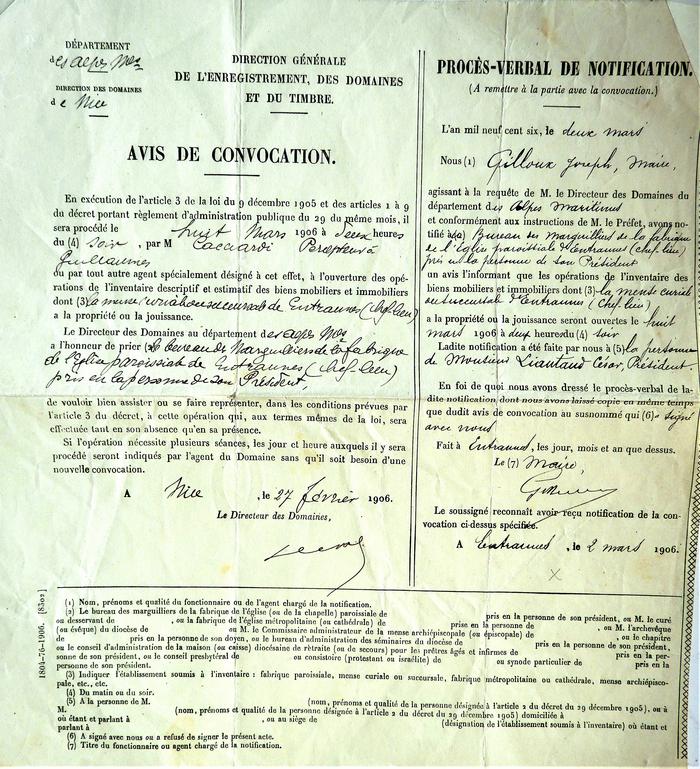 DÉPARTEMENT
des alpes Mmes
DIRECTION DES DOMAINES
de Nice
DIRECTION GÉNÉRALE
DE L'ENREGISTREMENT, DES DOMAINES
ET DU TIMBRE.
AVIS DE CONVOCATION.
En exécution de l'article 3 de la loi du 9 décembre 1905 et des articles 1 à 9
du décret portant règlement d'administration publique du 29 du même mois, il
sera procédé le huit Mars 1906 à deux heures
du (4) soir, par M Caccardi Percepteur à
Guillaumes
ou par tout autre agent spécialement désigné à cet effet, à l'ouverture des opé-
rations de l'inventaire descriptif et estimatif des biens mobiliers et immobiliers
dont (3) la mense curiale ou succursale de Entraunes (chef lieu)
a la propriété ou la jouissance.
Le Directeur des Domaines au département des alpes Mmes
a l'honneur de prier (2) le bureau des Marguilliers de la fabrique
de l'Eglise paroissiale de Entraunes (chef lieu)
pris en la personne de son Président
de vouloir bien assister ou se faire représenter, dans les conditions prévues par
l'article 3 du décret, à cette opération qui, aux termes mêmes de la loi, sera
effectuée tant en son absence qu'en sa présence.
Si l'opération nécessite plusieurs séances, les jour et heure auxquels il y sera
procédé seront indiqués par l'agent du Domaine sans qu'il soit besoin d'une
nouvelle convocation.
A Nice, le 27 février 1906.
Le Directeur des Domaines,
PROCÈS-VERBAL DE NOTIFICATION.
(A remettre à la partie avec la convocation.)
L'an mil neuf cent six, le deux mars
Nous (1) Gilloux Joseph, Maire,
agissant à la requête de M. le Directeur des Domaines du
département des Alpes Maritimes
et conformément aux instructions de M. le Préfet, avons no-
tifié à (2) Bureau des marguilliers de la fabrique
de l'Eglise paroissiale d'Entraunes (chef lieu)
pris en la personne de son Président
un avis l'informant que les opérations de l'inventaire des
biens mobiliers et immobiliers dont (3) la mense curiale
ou succursale d'Entraunes (chef lieu)
a la propriété ou la jouissance seront ouvertes le huit
mars 1906 à deux heures du (4) soir
Ladite notification a été faite par nous à (5) la personne
de Monsieur Liautaud César, Président.
En foi de quoi nous avons dressé le procès-verbal de la-
dite notification dont nous avons laissé copie en même temps
que dudit avis de convocation au susnommé qui (6) a signé
avec nous
Fait à Entraunes, les jour, mois et an que dessus.
Le (7) Maire,
Le soussigné reconnaît avoir reçu notification de la con-
vocation ci-dessus spécifiée.
A Entraunes, le 2 mars 1906.
1804-76-1906. (8302)
(1) Nom, prénoms et qualité du fonctionnaire ou de l'agent chargé de la notification.
(2) Le bureau des marguilliers de la fabrique de l'église (ou de la chapelle) paroissiale de pris en la personne de son président, ou M. le curé
ou desservant de , ou la fabrique de l'église métropolitaine (ou cathédrale) de prise en la personne de , ou M. l'archevêque
(ou évêque) du diocèse de ou M. le Commissaire administrateur de la mense archiépiscopale (ou épiscopale) de , ou le chapitre
de pris en la personne de son doyen, ou le bureau d'administration des séminaires du diocèse de pris en la personne de son président,
ou le conseil d'administration de la maison (ou caisse) diocésaine de retraite (ou de secours) pour les prêtres âgés et infirmes de pris en la per-
sonne de son président, ou le conseil presbytéral de ou consistoire (protestant ou israélite) de ou synode particulier de pris en la
personne de son président.
(3) Indiquer l'établissement soumis à l'inventaire : fabrique paroissiale, mense curiale ou succursale, fabrique métropolitaine ou cathédrale, mense archiépisco-
pale, etc., etc.
(4) Du matin ou du soir.
(5) A la personne de M. (nom, prénoms et qualité de la personne désignée à l'article 2 du décret du 29 décembre 1905), ou à
M. (nom, prénoms et qualité de la personne désignée à l'article 2 du décret du 29 décembre 1905) domiciliée à
où étant et parlant à , ou au siège de (désignation de l'établissement soumis à l'inventaire) où étant et
parlant à
(6) A signé avec nous ou a refusé de signer le présent acte.
(7) Titre du fonctionnaire ou agent chargé de la notification.